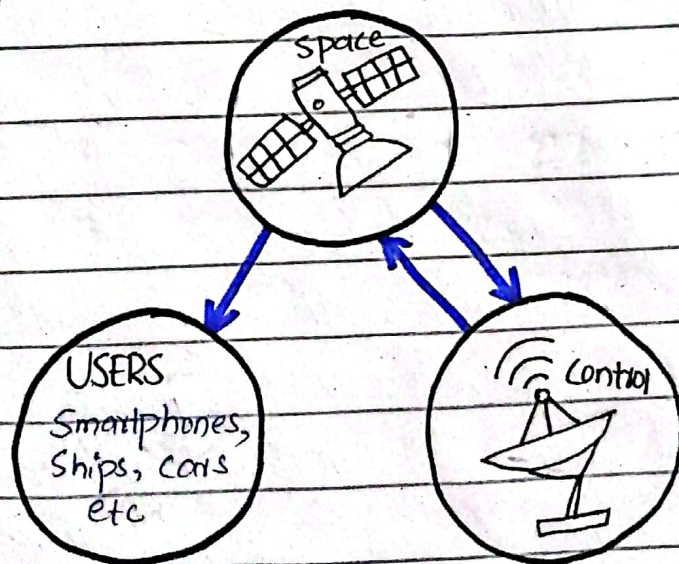 space
USERS
Smartphones,
Ships, cars
etc
Control